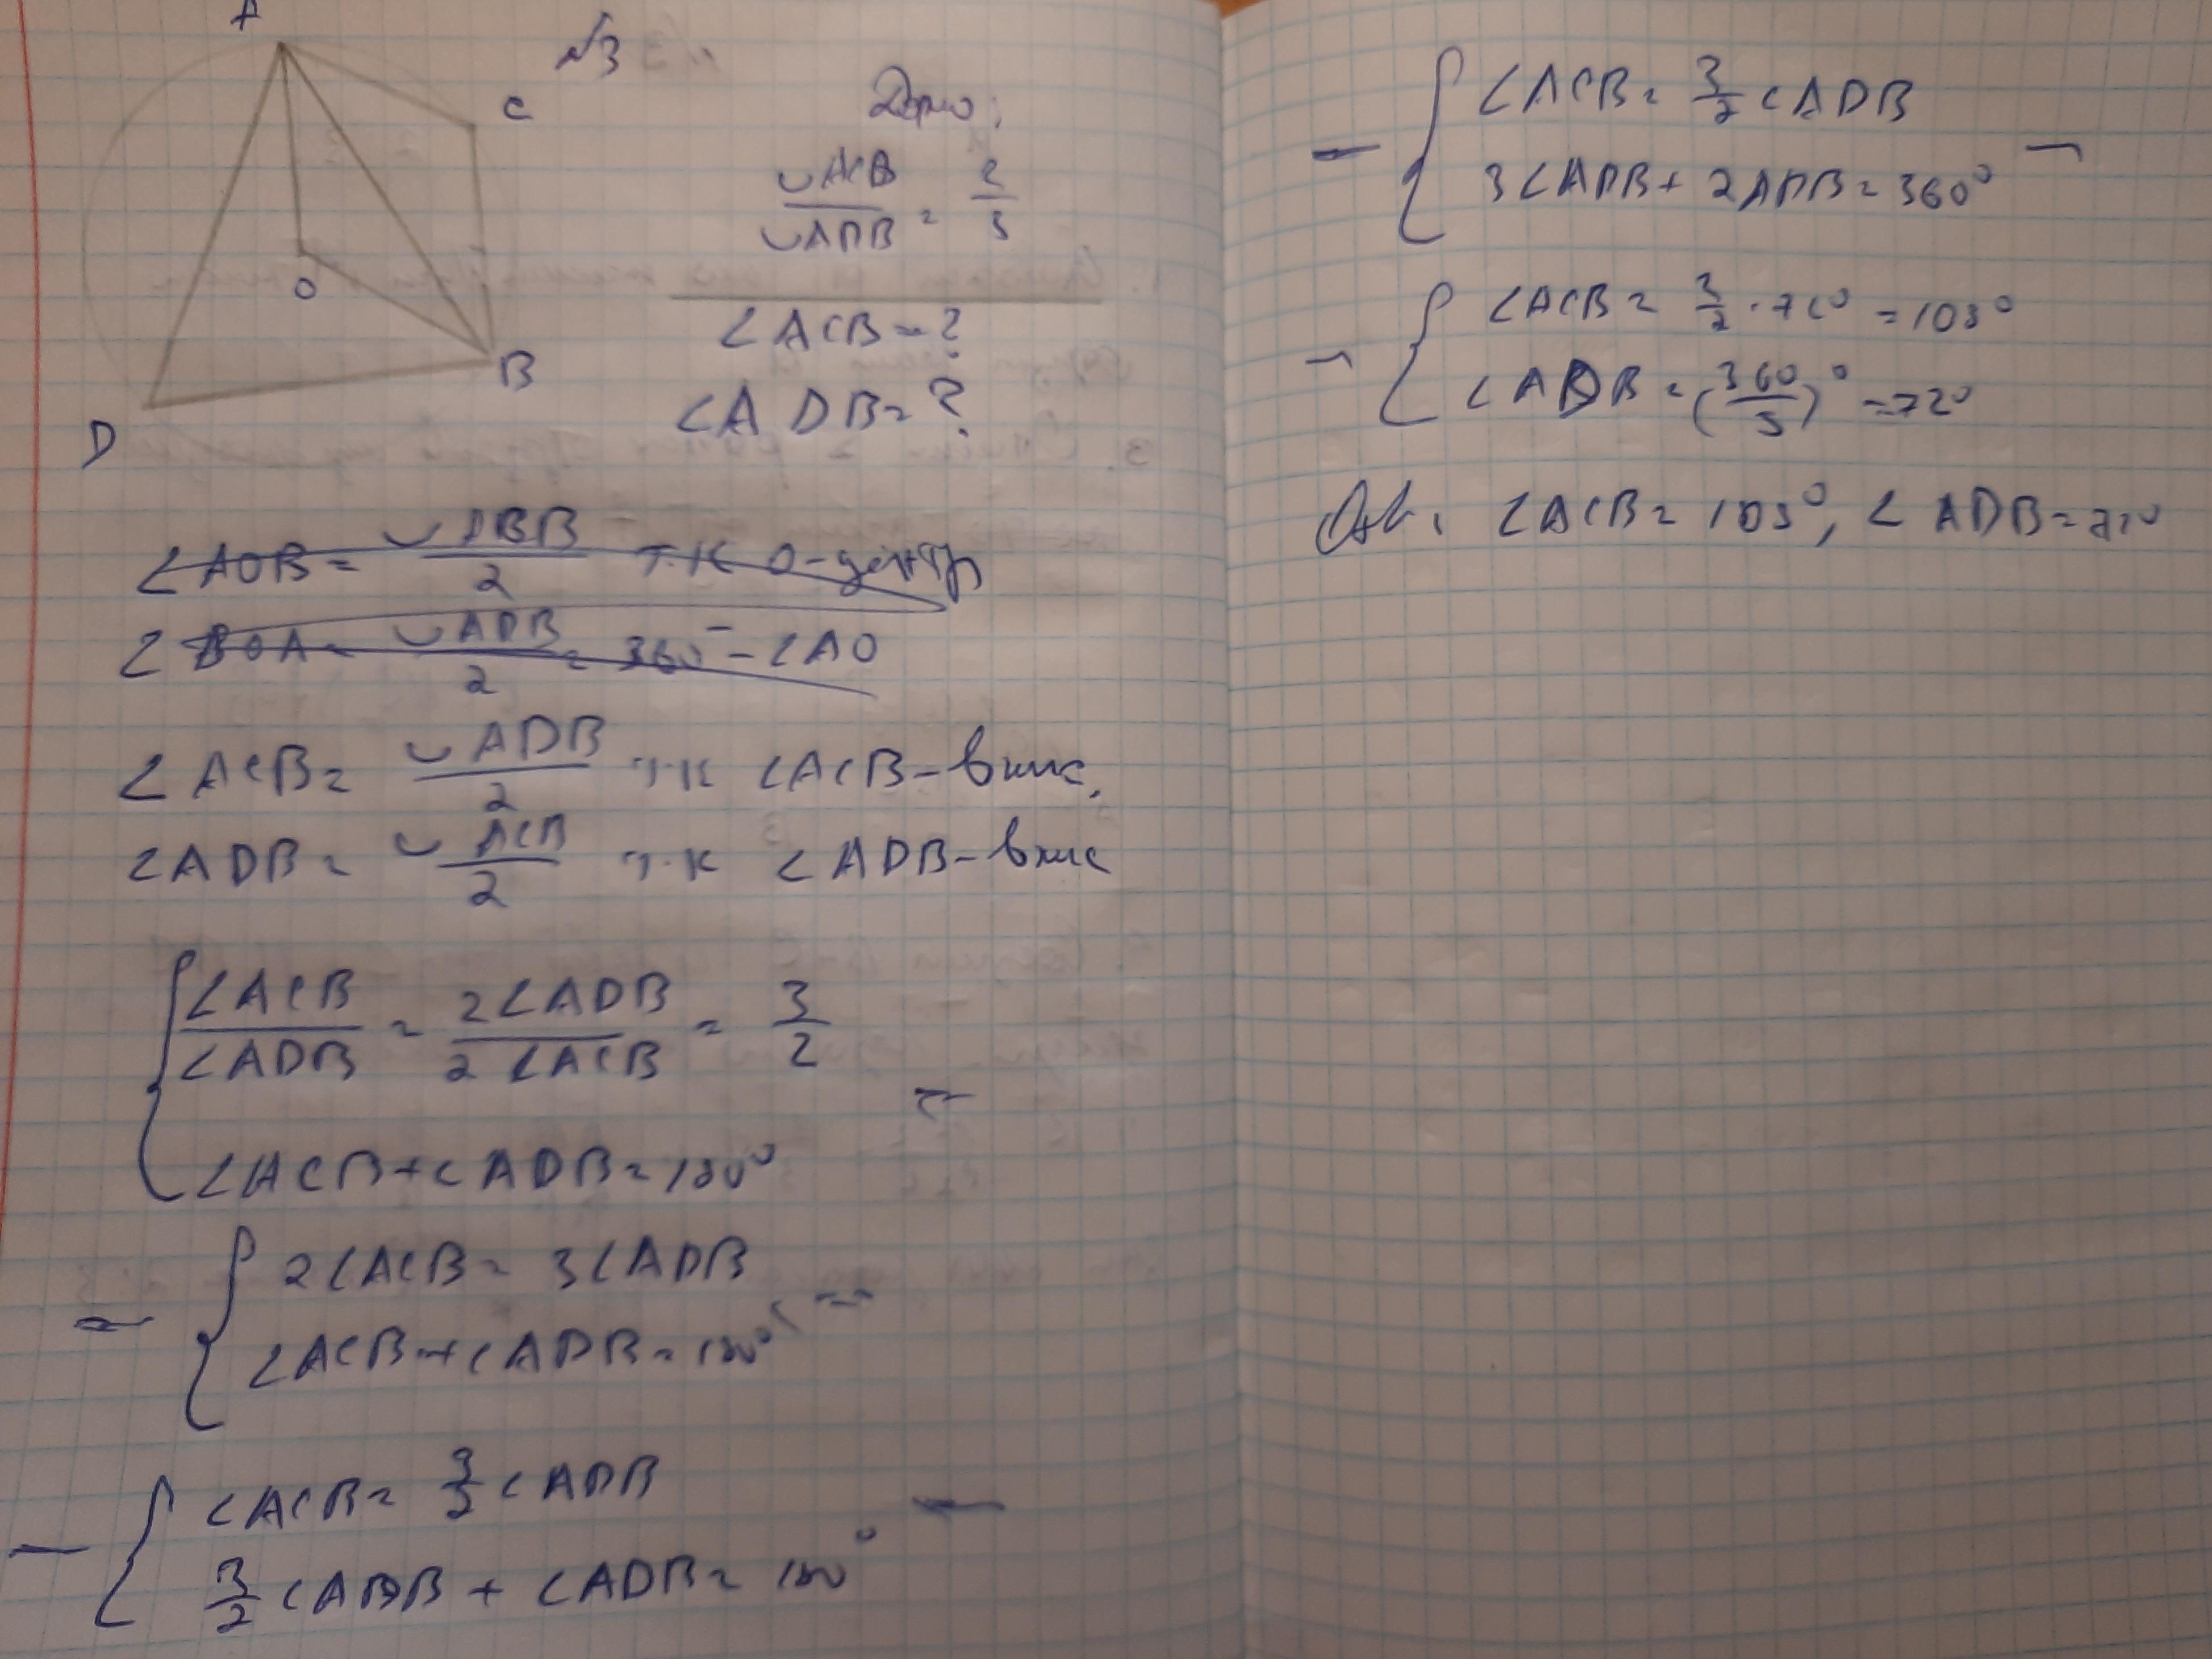 A
C
O
B
D
№3
Дано:
◡ACB / ◡ADB = 2/3
∠ACB = ?
∠ADB = ?
∠AOB = /2 т.к O-центр
∠BOA = ◡ADB/2 = 360 - ∠AO
∠ACB = ◡ADB/2 т.к ∠ACB - впис.
∠ADB = ◡ACB/2 т.к ∠ADB - впис
{ ∠ACB/∠ADB = 2∠ADB/2∠ACB = 3/2
∠ACB + ∠ADB = 180° =
= { 2∠ACB = 3∠ADB
∠ACB + ∠ADB = 180° =
- { ∠ACB = 3/2 ∠ADB
3/2 ∠ADB + ∠ADB = 180° -
- { ∠ACB = 3/2 ∠ADB
3∠ADB + 2ADB = 360° -
- { ∠ACB = 3/2 · 72° = 108°
∠ADB = (360/5)° = 72°
Отв: ∠ACB = 108°, ∠ADB = 72°